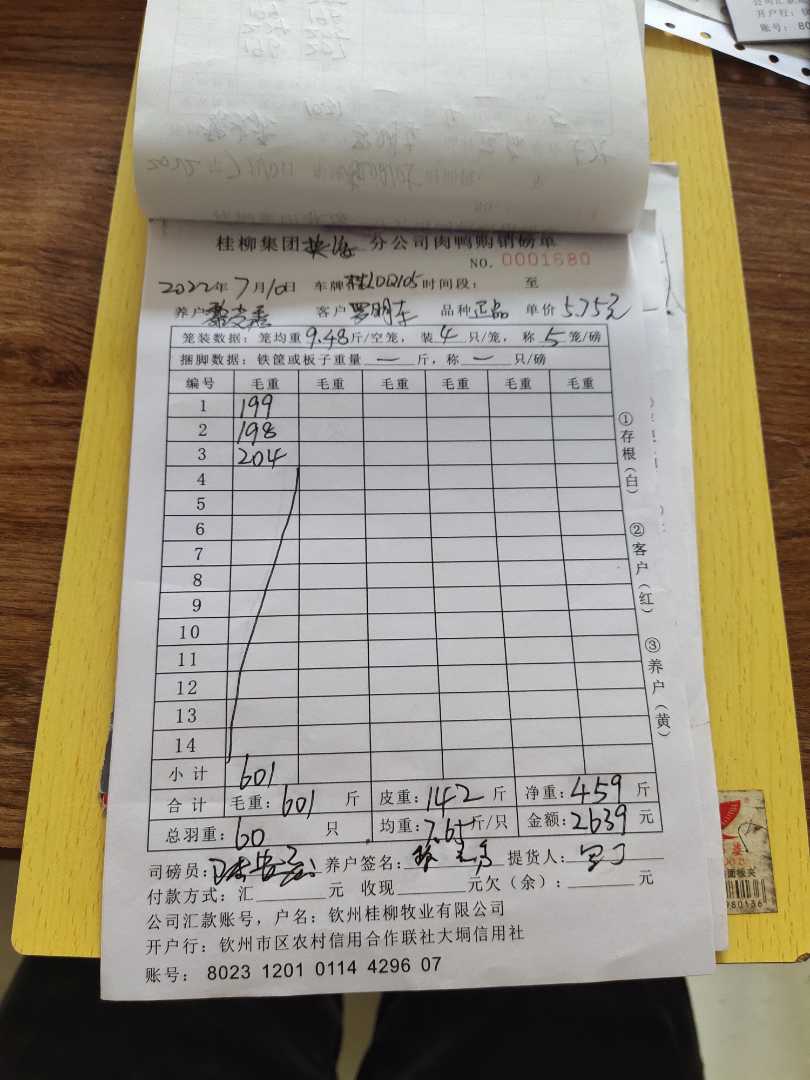 桂柳集团 分公司肉鸭购销磅单
NO. 0001680
2022年7月10日 车牌 桂L0Q105 时间段: 至
养户 客户 罗明东 品种 正品 单价 5.75元
笼装数据: 笼均重 9.48 斤/空笼, 装 4 只/笼, 称 5 笼/磅
捆脚数据: 铁筐或板子重量 — 斤, 称 — 只/磅
编号 毛重 毛重 毛重 毛重 毛重 毛重
1 199
2 198
3 204
4
5
6
7
8
9
10
11
12
13
14
小计 601
合计 毛重: 601 斤 皮重: 142 斤 净重: 459 斤
总羽重: 60 只 均重: 7.65 斤/只 金额: 2639 元
司磅员: 养户签名: 提货人:
付款方式: 汇 元 收现 元欠(余): 元
公司汇款账号, 户名: 钦州桂柳牧业有限公司
开户行: 钦州市区农村信用合作联社大垌信用社
账号: 8023 1201 0114 4296 07
①存根(白) ②客户(红) ③养户(黄)
开户行: 钦
账号: 80